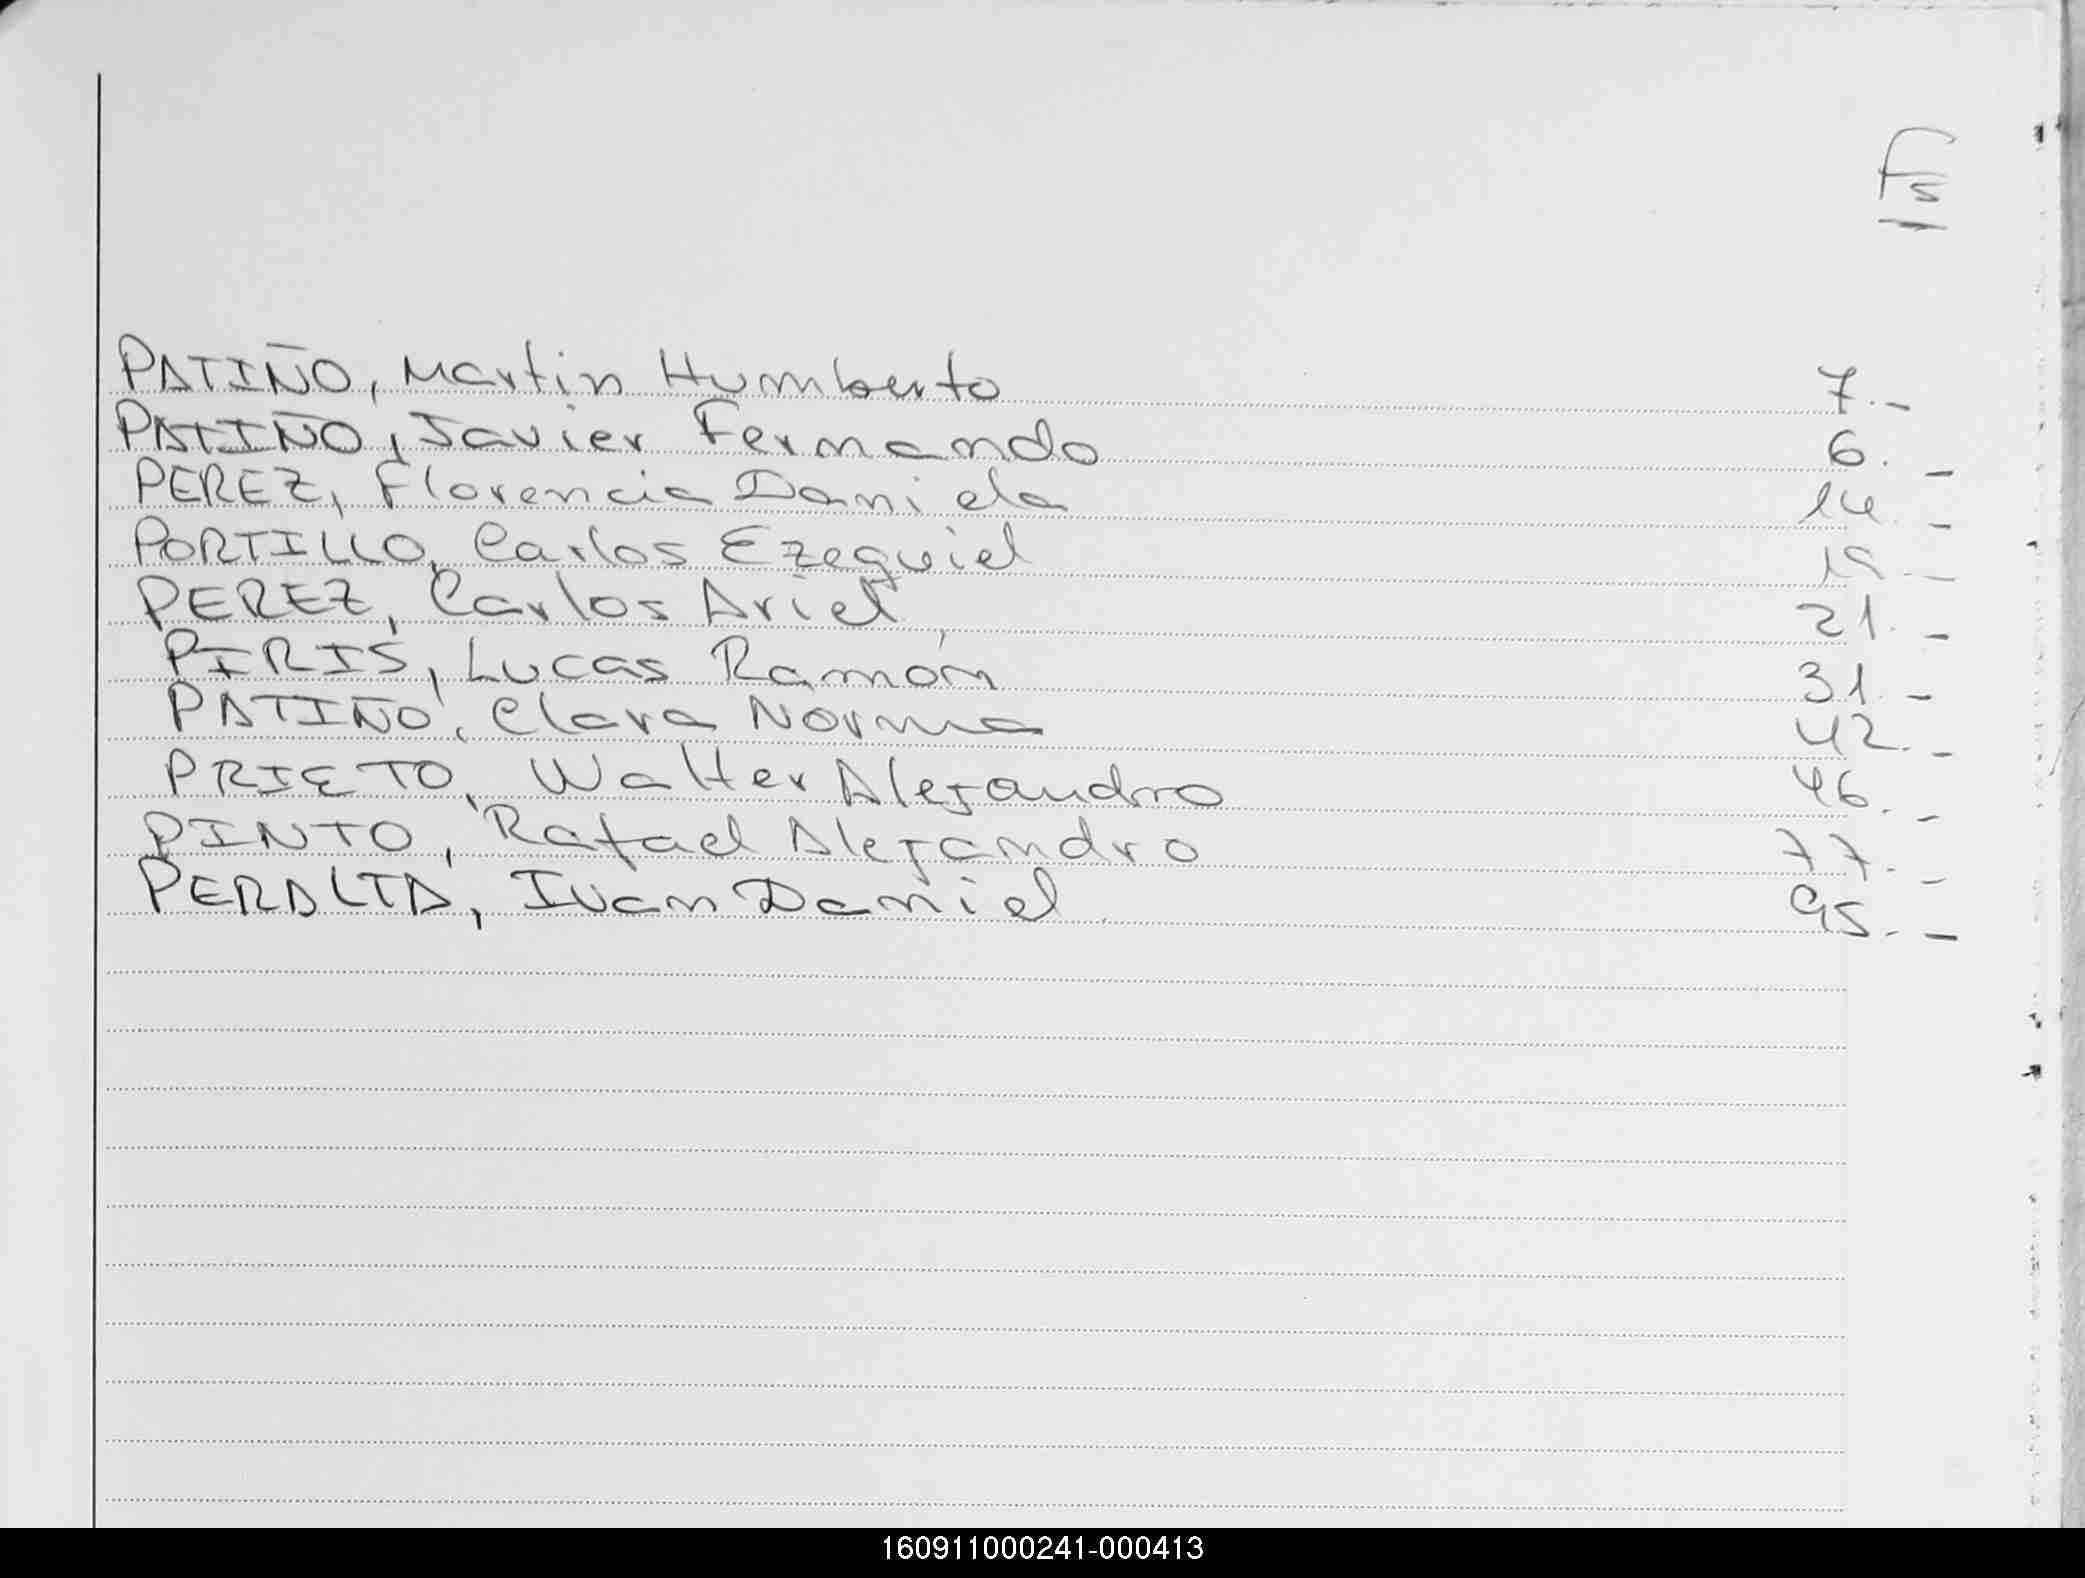 Fs
PATIÑO, Martin Humberto 7.-
PATIÑO, Javier Fernando 6.-
PEREZ, Florencia Daniela 14.-
PORTILLO, Carlos Ezequiel 19.-
PEREZ, Carlos Ariel 21.-
PIRIS, Lucas Ramón 31.-
PATIÑO, Clara Norma 42.-
PRIETO, Walter Alejandro 46.-
PINTO, Rafael Alejandro 77.-
PERALTA, Ivan Daniel 95.-
160911000241-000413